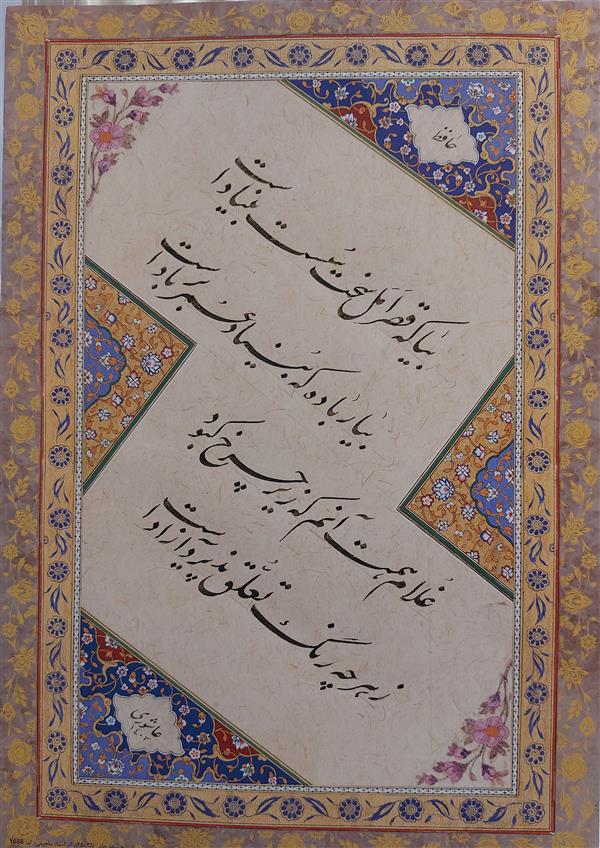 حافظ
بیا که قصر امل سخت سست بنیاد است
بیار باده که بنیاد عمر بر باد است
غلام همت آنم که زیر چرخ کبود
ز هر چه رنگ تعلق پذیرد آزاد است
عاشوری
۱۴۰۲